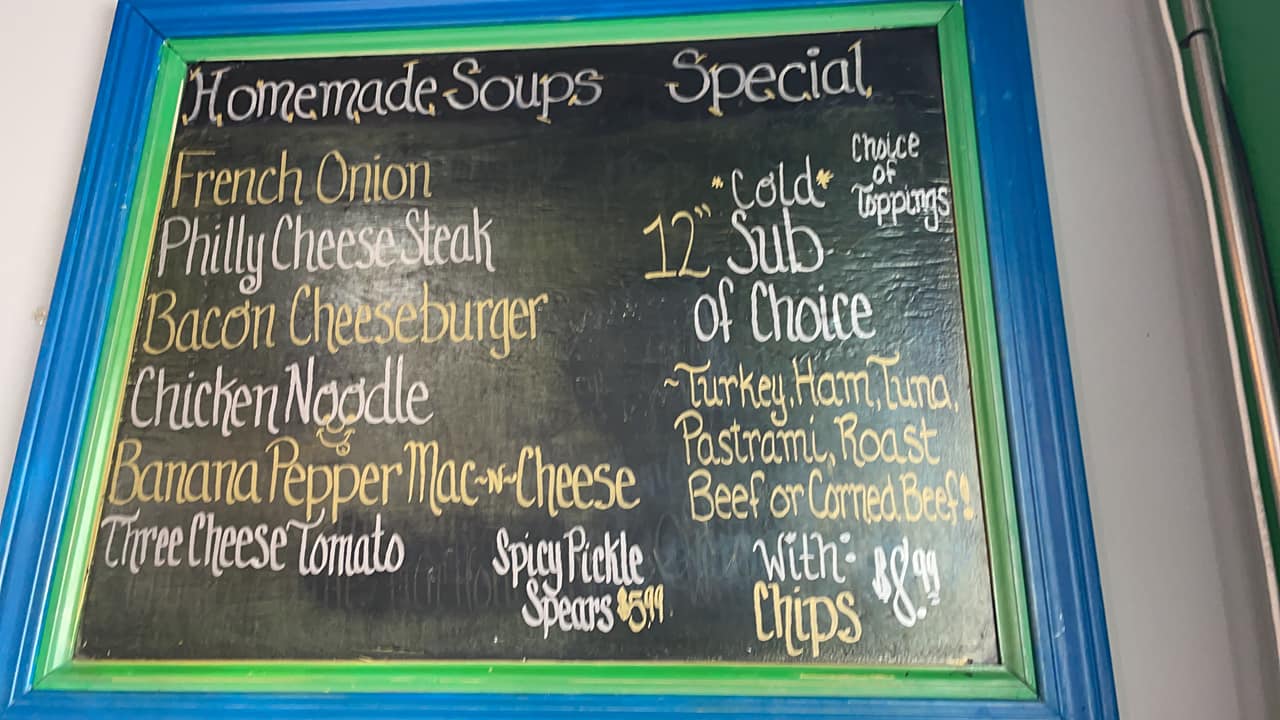 Homemade Soups
French Onion
Philly Cheese Steak
Bacon Cheeseburger
Chicken Noodle
Banana Pepper Mac~N~Cheese
Three Cheese Tomato
Spicy Pickle
Spears $5.99
Special
*Cold*
Choice
of
Toppings
12" Sub
of Choice
~Turkey, Ham, Tuna,
Pastrami, Roast
Beef or Corned Beef!
With:
Chips
$8.99